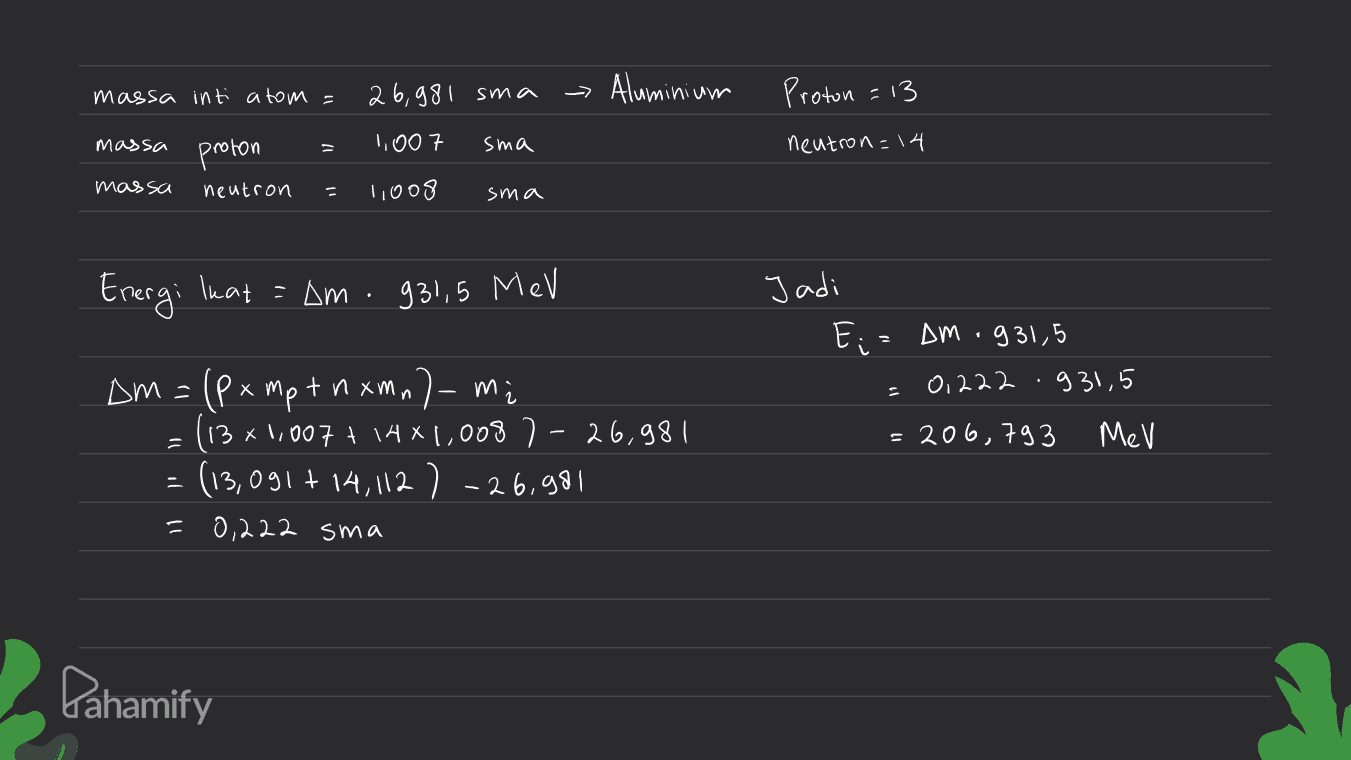 massa inti atom = 26,981 sma → Aluminium Proton = 13
massa proton = 1,007 sma neutron = 14
massa neutron = 1,008 sma
Energi Ikat = Δm . 931,5 MeV
Δm = (P x mp + n x mn) - mi
= (13 x 1,007 + 14 x 1,008) - 26,981
= (13,091 + 14,112) - 26,981
= 0,222 sma
Jadi
Ei = Δm . 931,5
= 0,222 . 931,5
= 206,793 MeV
Pahamify